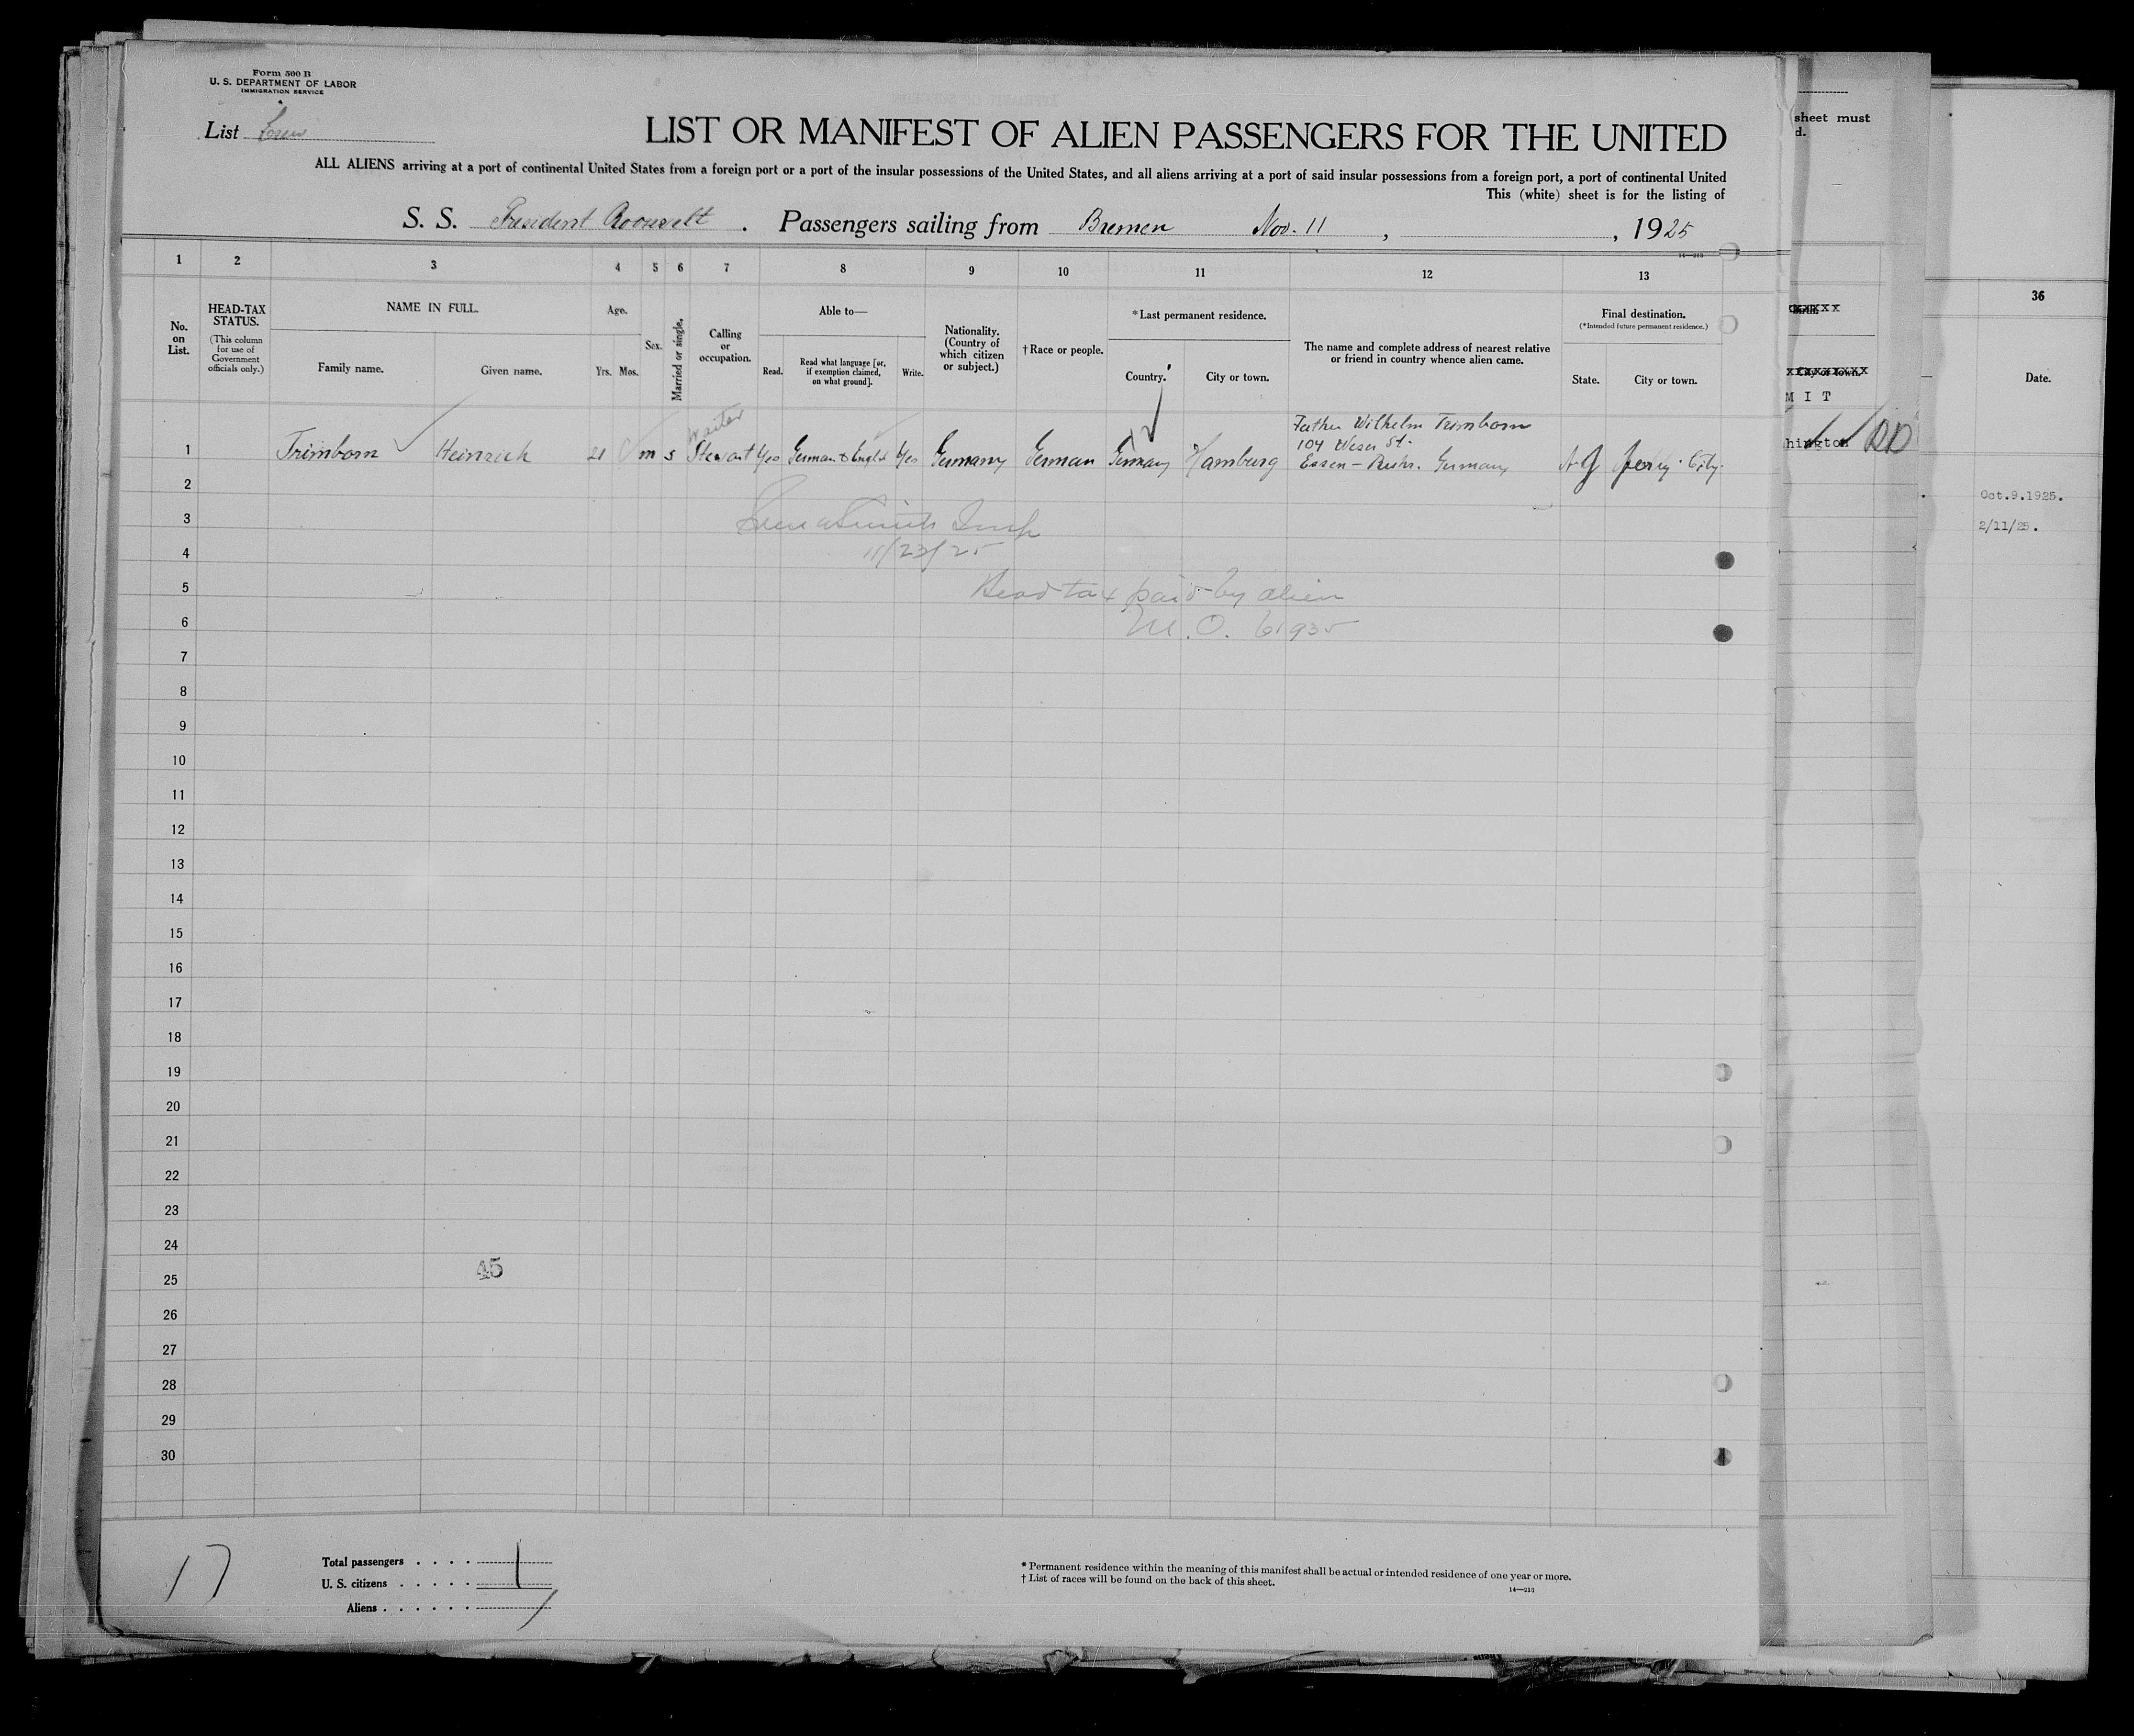 Form 500 B
U. S. DEPARTMENT OF LABOR
IMMIGRATION SERVICE
List
LIST OR MANIFEST OF ALIEN PASSENGERS FOR THE UNITED
ALL ALIENS arriving at a port of continental United States from a foreign port or a port of the insular possessions of the United States, and all aliens arriving at a port of said insular possessions from a foreign port, a port of continental United
This (white) sheet is for the listing of
S. S. President Roosevelt . Passengers sailing from Bremen Nov. 11 , , 1925
14—213
1 2 3 4 5 6 7 8 9 10 11 12 13
No. on List.
HEAD-TAX STATUS.
(This column for use of Government officials only.)
NAME IN FULL.
Family name. Given name.
Age.
Yrs. Mos.
Sex.
Married or single.
Calling or occupation.
Able to—
Read. Read what language [or, if exemption claimed, on what ground]. Write.
Nationality. (Country of which citizen or subject.)
† Race or people.
* Last permanent residence.
Country. City or town.
The name and complete address of nearest relative or friend in country whence alien came.
Final destination.
(*Intended future permanent residence.)
State. City or town.
Waiter
Father Wilhelm Trimborn
104 Weser St.
1 Trimborn Heinrich 21 m s Stewart Yes German & Engl Yes Germany German Germany Hamburg Essen – Ruhr. Germany N J Jersey City.
2
3
11/23/25
4
5
Head tax paid by alien
6
M.O. 61935
7
8
9
10
11
12
13
14
15
16
17
18
19
20
21
22
23
24
45
25
26
27
28
29
30
17
Total passengers . . . . 1
U. S. citizens . . . . .
Aliens . . . . . . /
* Permanent residence within the meaning of this manifest shall be actual or intended residence of one year or more.
† List of races will be found on the back of this sheet.
14—213
sheet must
d.
City or town.
M I T
hington
36
Date.
Oct.9.1925.
2/11/25.